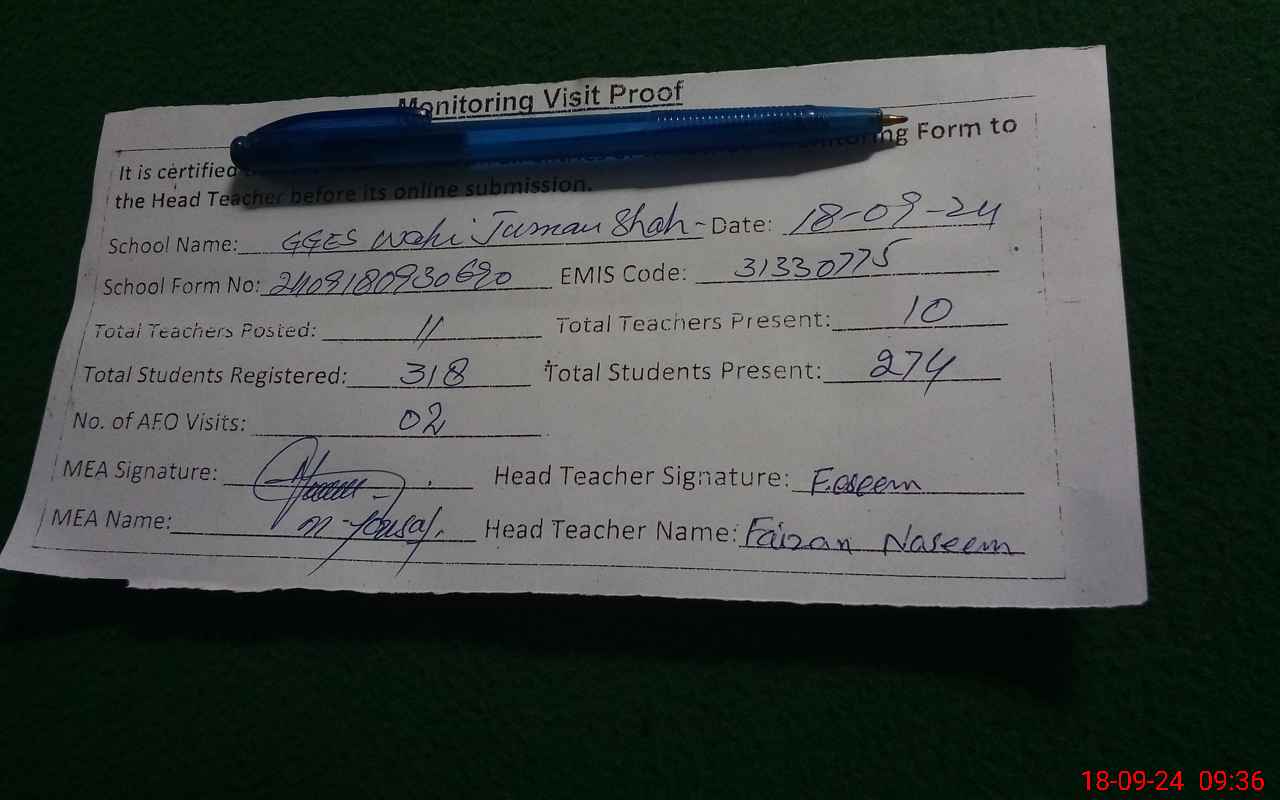 Monitoring Visit Proof
It is certified Monitoring Form to
the Head Teacher before its online submission.
School Name: GGES Wahi Juman Shah - Date: 18-09-24
School Form No: 2409180930690 EMIS Code: 31330775
Total Teachers Posted: 11 Total Teachers Present: 10
Total Students Registered: 318 Total Students Present: 274
No. of AEO Visits: 02
MEA Signature: Head Teacher Signature: F.aseem
MEA Name: M-Yousaf. Head Teacher Name: Faizan Naseem
18-09-24 09:36